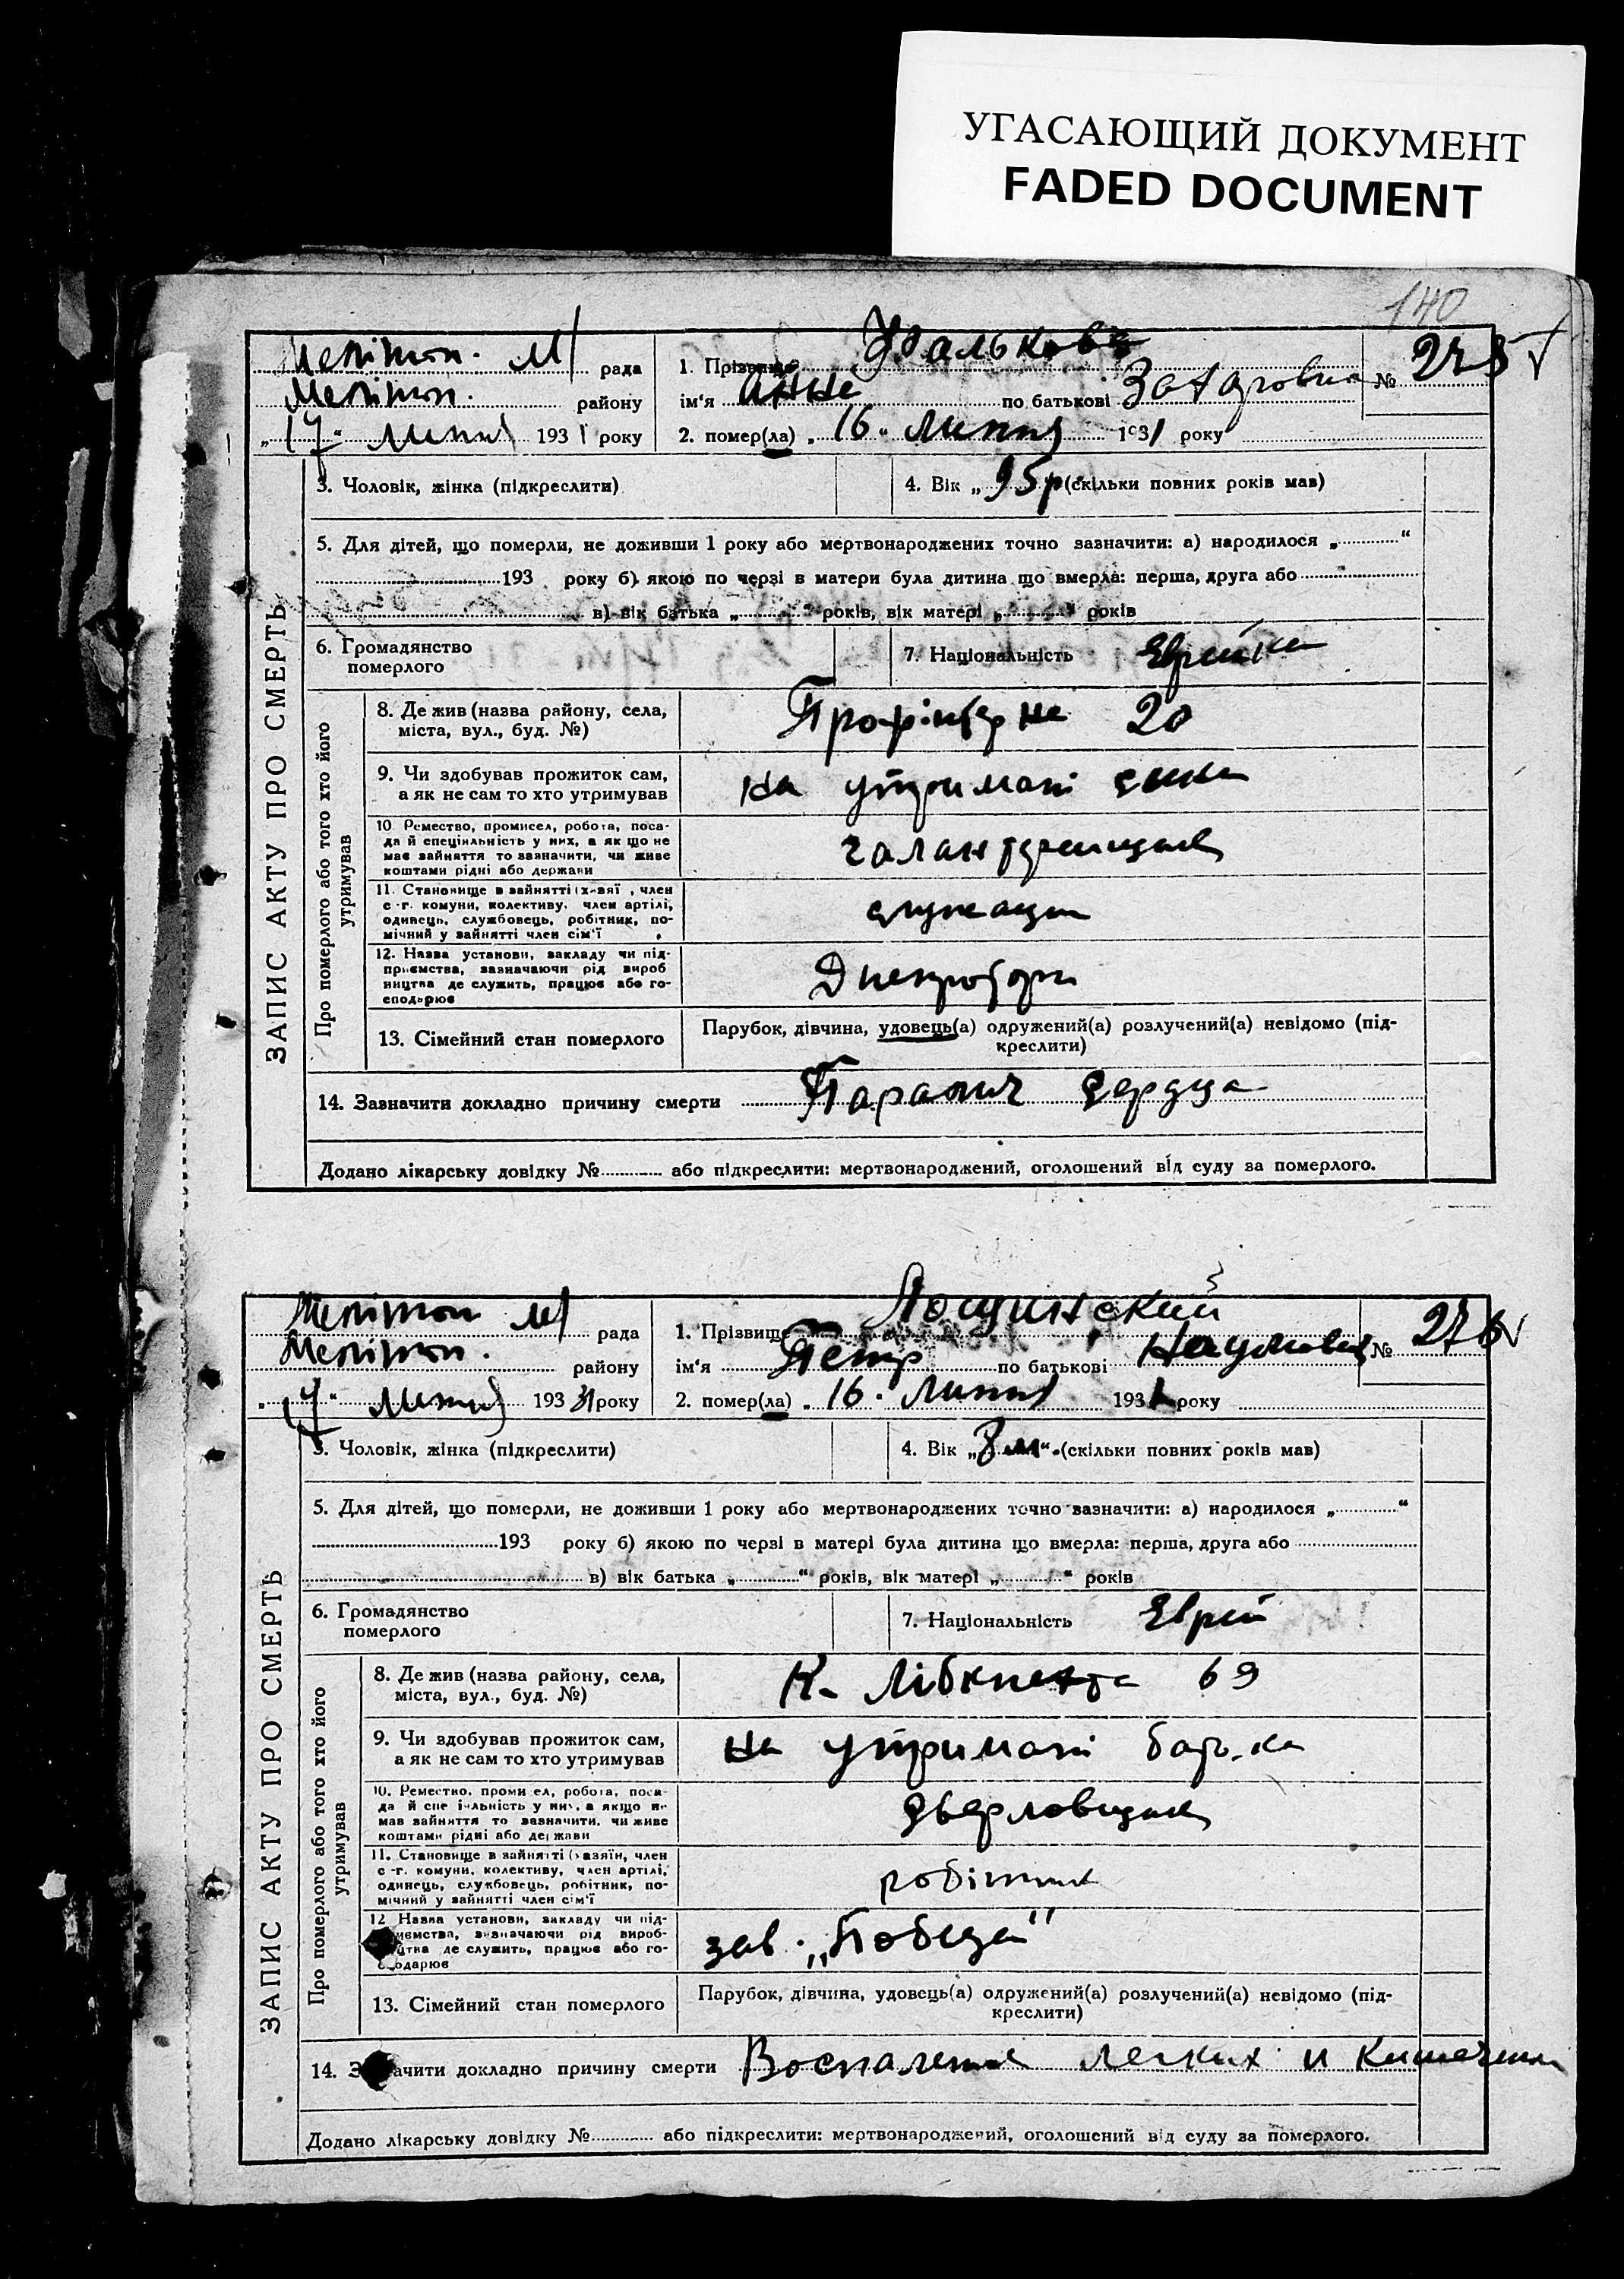 УГАСАЮЩИЙ ДОКУМЕНТ
FADED DOCUMENT
140
Мелітоп. М/ рада
Мелітоп. району
„17“ Липня 1931 року
1. Прізвище Фалькова
ім‘я по батькові
№ 275 V
2. помер(ла) „16“ Липня 1931 року
ЗАПИС АКТУ ПРО СМЕРТЬ
3. Чоловік, жінка (підкреслити)
4. Вік „95р“ (скільки повних років мав)
5. Для дітей, що померли, не доживши 1 року або мертвонароджених точно зазначити: а) народилося „ “
193 року б) якою по черзі в матери була дитина що вмерла: перша, друга або
в) вік батька „ “ років, вік матері „ “ років
6. Громадянство
померлого
7. Національність Еврейка
Про померлого або того хто його
утримував
8. Де жив (назва району, села,
міста, вул., буд. №)
Профінтерна 20
9. Чи здобував прожиток сам,
а як не сам то хто утримував
на утримані сина
10. Ремество, промисел, робота, поса-
да й спеціяльність у них, а як що не
має зайняття то зазначити, чи живе
коштами рідні або держави
галантерейщик
11. Становище в зайнятті (хазяї, член
с.-г. комуни, колективу, член артілі,
одинець, службовець, робітник, по-
мічний у зайнятті член сім‘ї
12. Назва установи, закладу чи під-
приємства, зазначаючи рід вироб
ництва де служить, працює або го-
сподарює
13. Сімейний стан померлого
Парубок, дівчина, удовець(а) одружений(а) розлучений(а) невідомо (під-
креслити)
14. Зазначити докладно причину смерти Паралич сердца
Додано лікарську довідку № або підкреслити: мертвонароджений, оголошений від суду за померлого.
Мелітоп М/ рада
Мелітоп. району
„17“ Липня 1931 року
1. Прізвище Лощинский
ім‘я Петр по батькові Наумович
№ 276 V
2. помер(ла) „16“ Липня 1931 року
ЗАПИС АКТУ ПРО СМЕРТЬ
3. Чоловік, жінка (підкреслити)
4. Вік „8 м“ (скільки повних років мав)
5. Для дітей, що померли, не доживши 1 року або мертвонароджених точно зазначити: а) народилося „ “
193 року б) якою по черзі в матері була дитина що вмерла: перша, друга або
в) вік батька „ “ років, вік матері „ “ років
6. Громадянство
померлого
7. Національність Еврей
Про померлого або того хто його
утримував
8. Де жив (назва району, села,
міста, вул., буд. №)
К. Лібкнехта 69
9. Чи здобував прожиток сам,
а як не сам то хто утримував
на утримані батька
10. Ремество, промисел, робота, поса-
да й спеціяльність у них, а якщо не
мав зайняття то зазначити, чи живе
коштами рідні або держави
11. Становище в зайнятті (хазяїн, член
с.-г. комуни, колективу, член артілі,
одинець, службовець, робітник, по-
мічний у зайнятті член сім‘ї
робітник
12 Назва установи, закладу чи під-
приємства, зазначаючи рід вироб-
ництва де служить, працює або го-
сподарює
зав. „Победа“
13. Сімейний стан померлого
Парубок, дівчина, удовець(а) одружений(а) розлучений(а) невідомо (під-
креслити)
14. Зазначити докладно причину смерти Воспаление легких и кишечник
Додано лікарську довідку № або підкреслити: мертвонароджений, оголошений від суду за померлого.